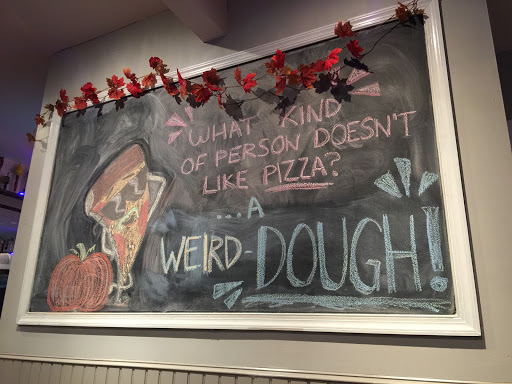 WHAT KIND
OF PERSON DOESN'T
LIKE PIZZA?
...A
WEIRD-DOUGH!